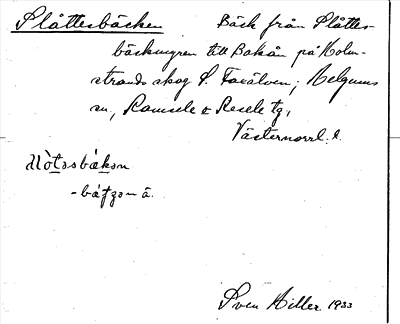 Slåttesbäcken Bäck från Slåttes-
bäckmyren till Bakån på Holm-
strands skog S. Faxälven; Helgums
sn, Ramsele & Resele tg,
Västernorrl. l.
-bäcken å.
Sven Hiller 1933